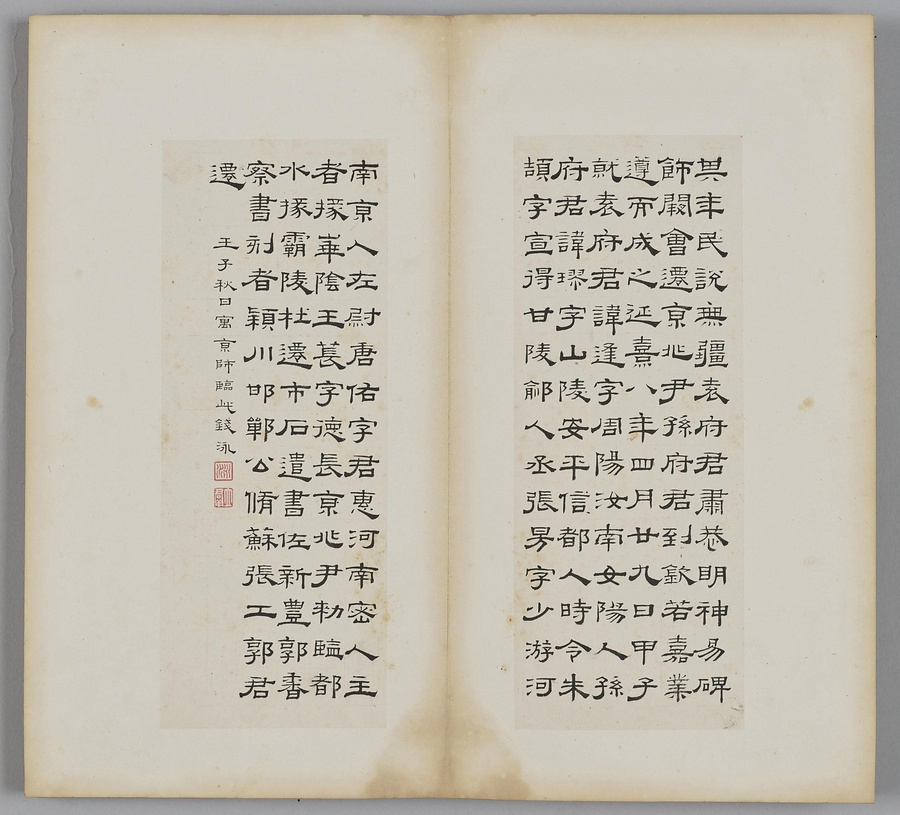 其年民說無疆袁府君肅恭明神易碑
飾闕會遷京兆尹孫府君到欽若嘉業
遵而成之延熹八年四月廿九日甲子
就袁府君諱逢字周陽汝南女陽人孫
府君諱璆字山陵安平信都人時令朱
頡字宣得甘陵鄃人丞張昉字少游河
南京人左尉唐佑字君惠河南密人主
者掾華陰王萇字德長京兆尹勑監都
水掾霸陵杜遷市石遣書佐新豐郭香
察書刻者潁川邯鄲公脩蘇張工郭君
遷
壬子秋日寓京師臨此錢泳